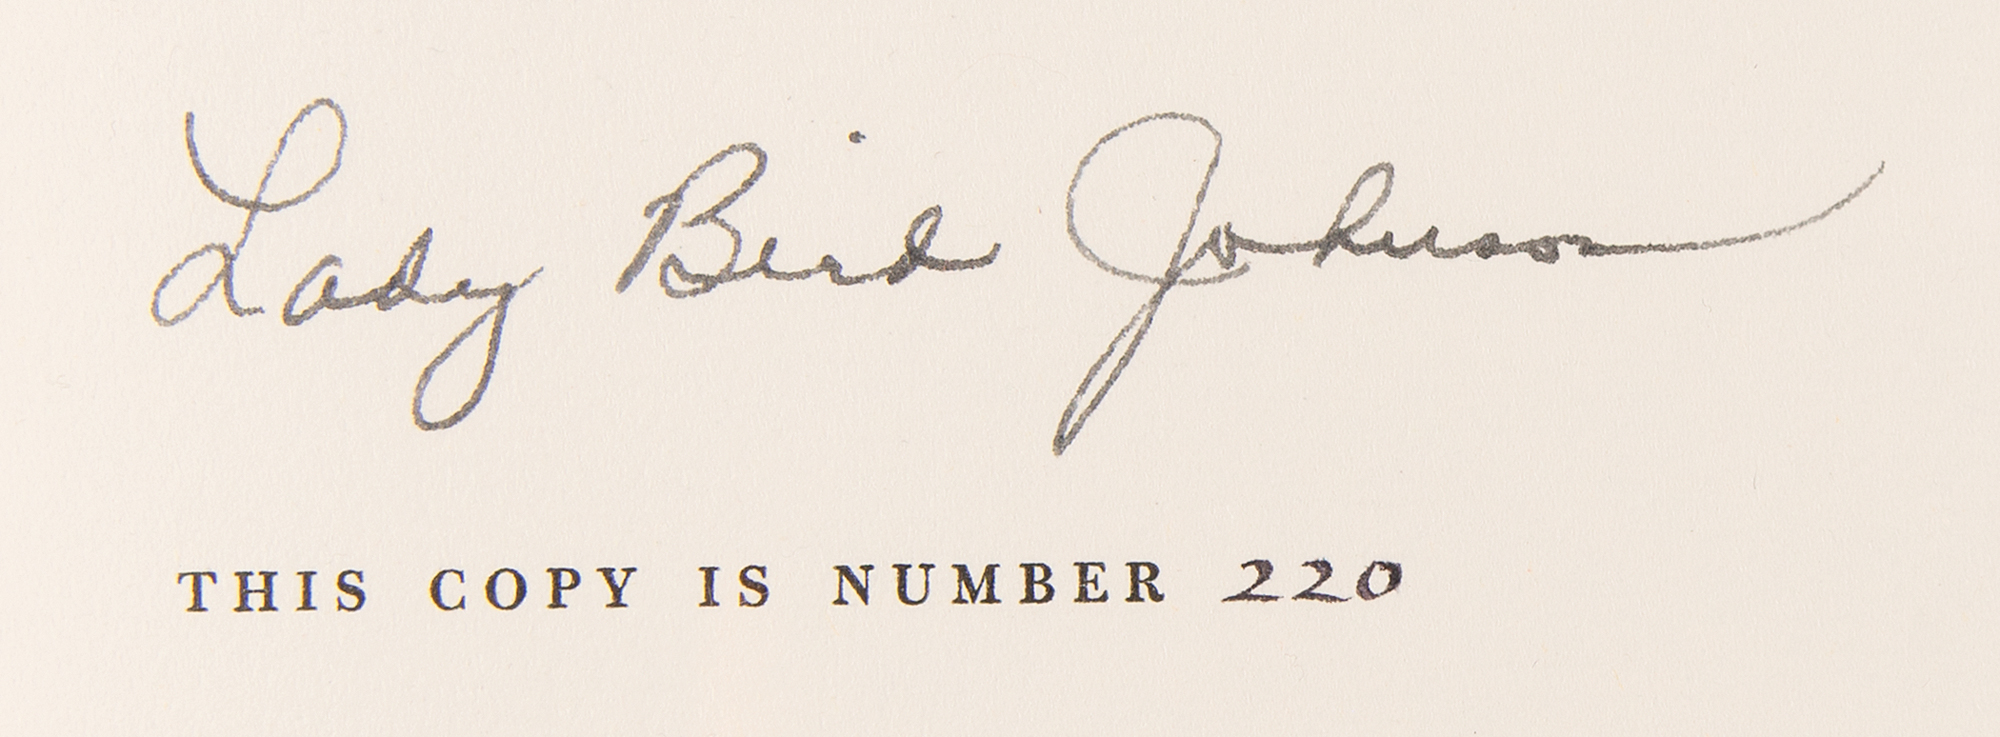 Lady Bird Johnson
THIS COPY IS NUMBER 220